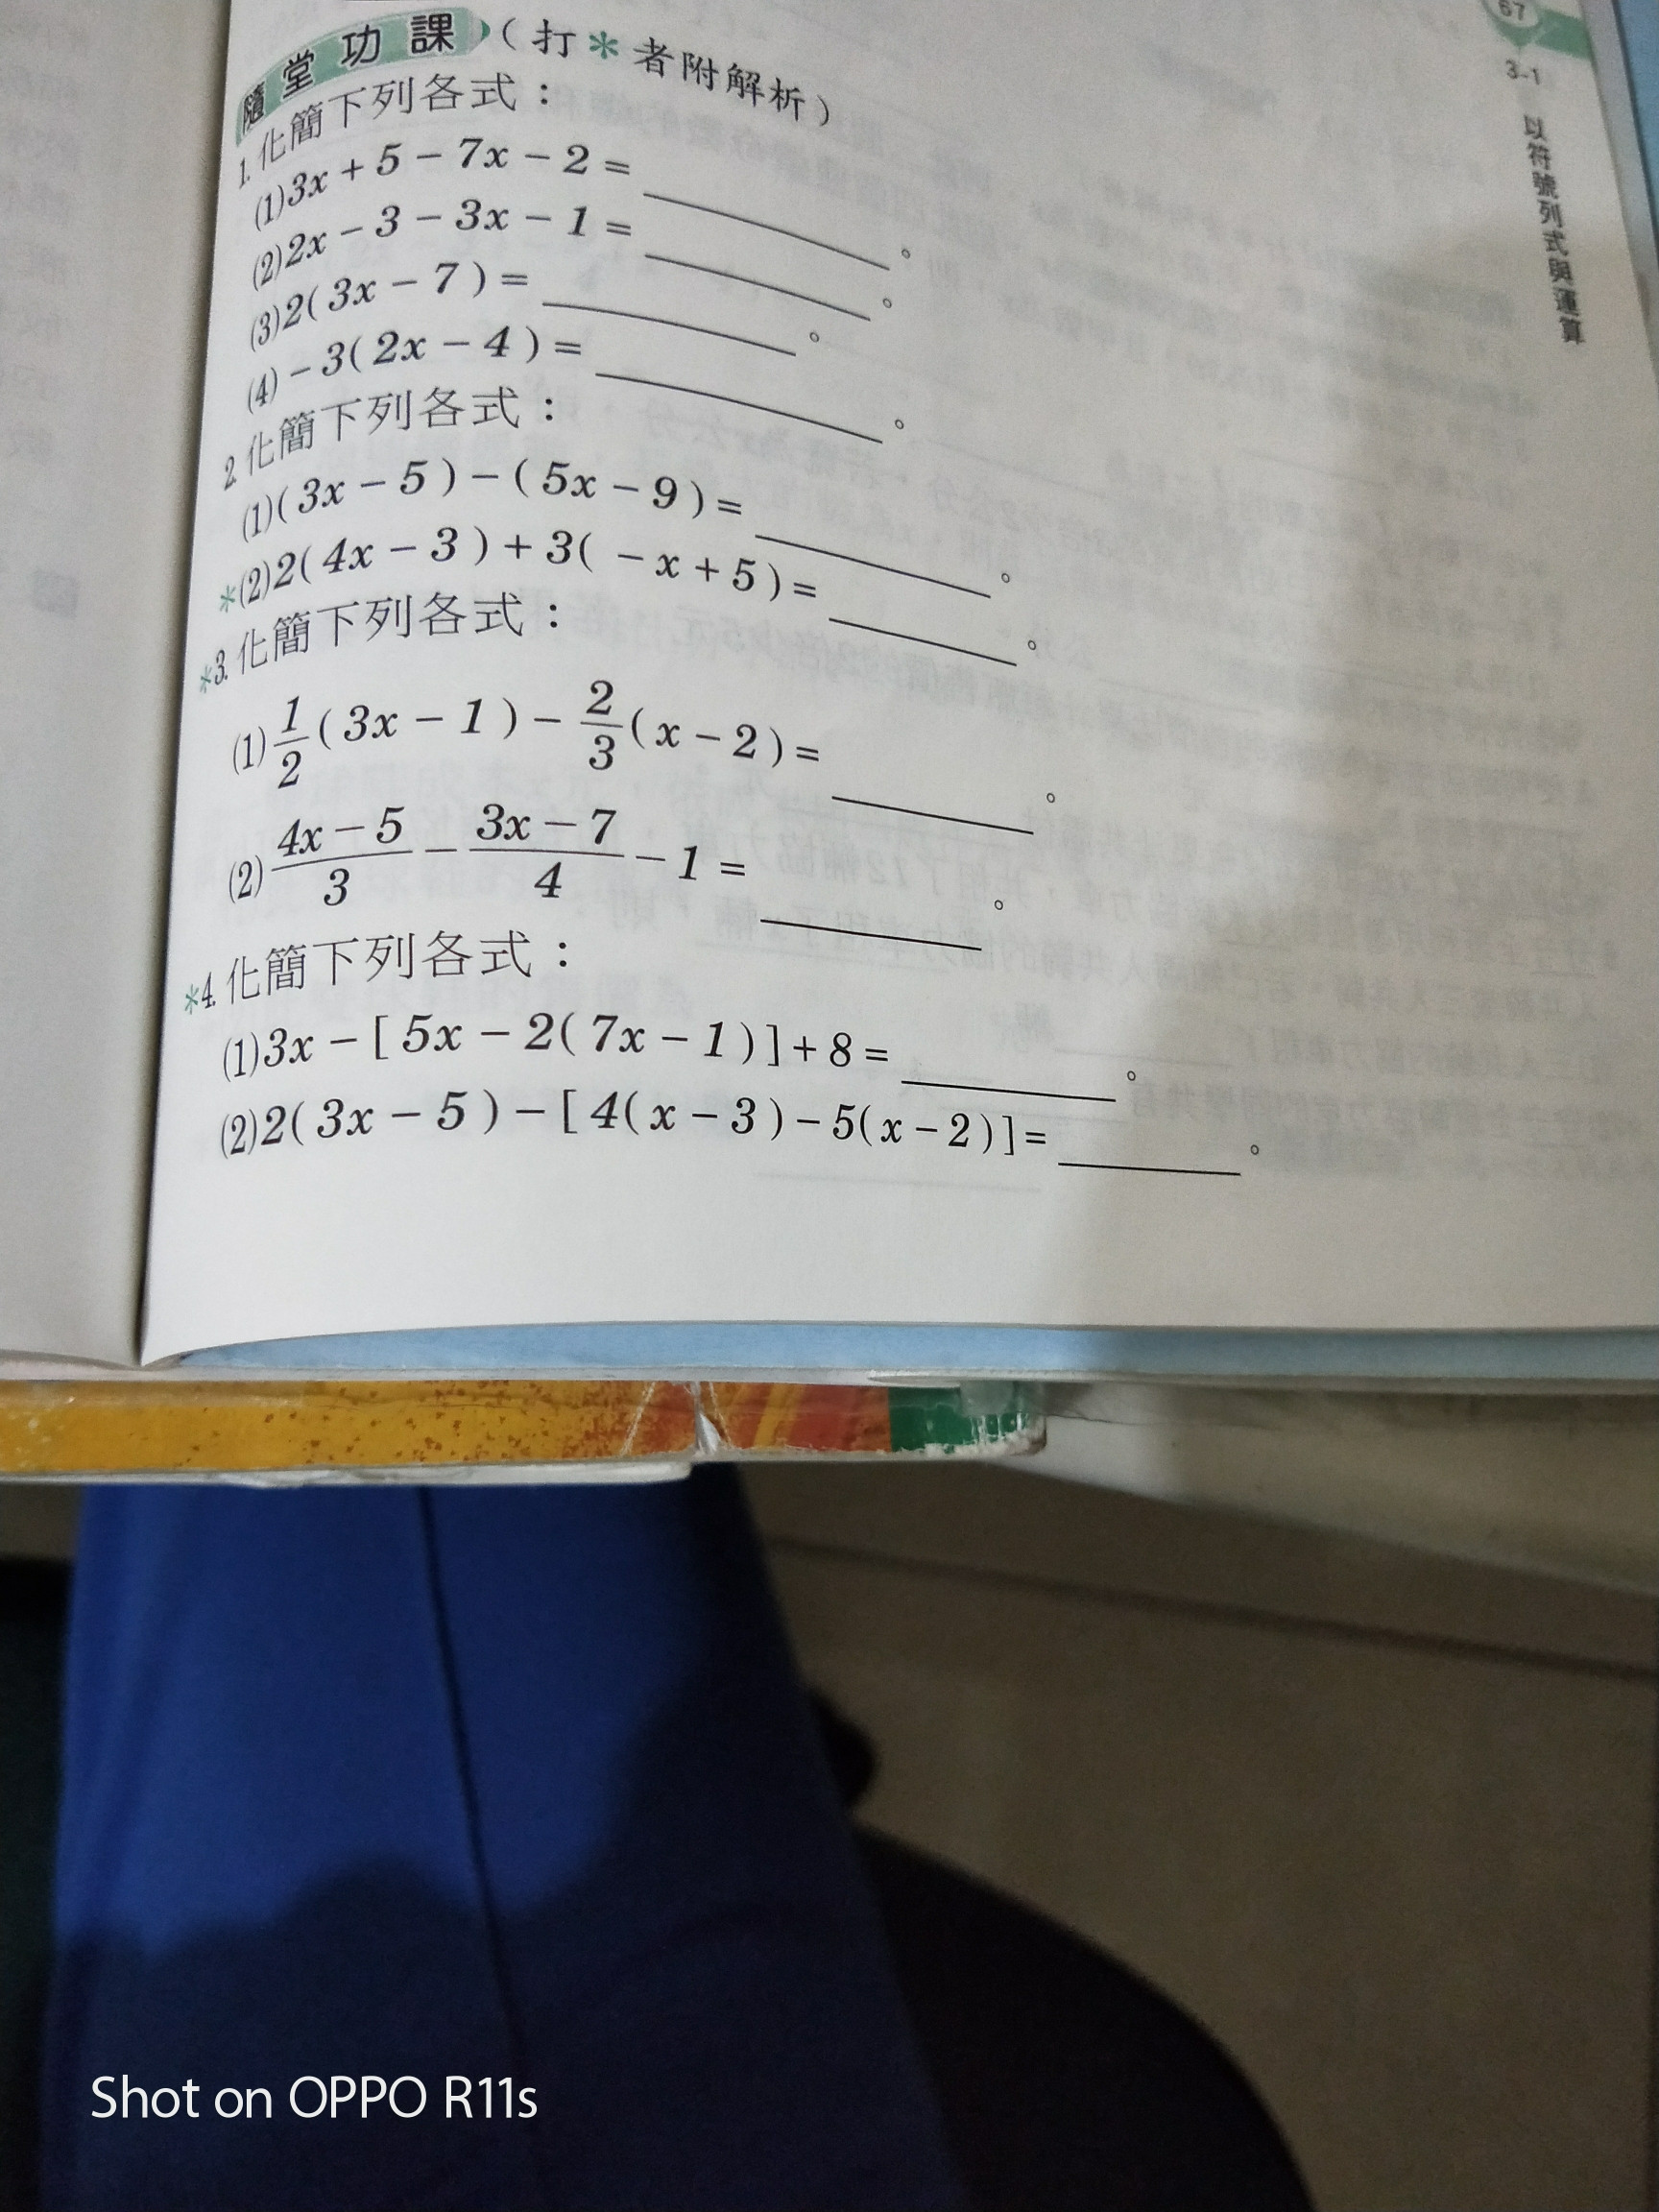 隨堂功課(打*者附解析)
1.化簡下列各式:
(1)3x+5-7x-2=________。
(2)2x-3-3x-1=________。
(3)2(3x-7)=________。
(4)-3(2x-4)=________。
2.化簡下列各式:
(1)(3x-5)-(5x-9)=________。
*(2)2(4x-3)+3(-x+5)=________。
*3.化簡下列各式:
(1)1/2(3x-1)-2/3(x-2)=________。
(2)(4x-5)/3-(3x-7)/4-1=________。
*4.化簡下列各式:
(1)3x-[5x-2(7x-1)]+8=________。
(2)2(3x-5)-[4(x-3)-5(x-2)]=________。
67
3-1
以符號列式與運算
Shot on OPPO R11s